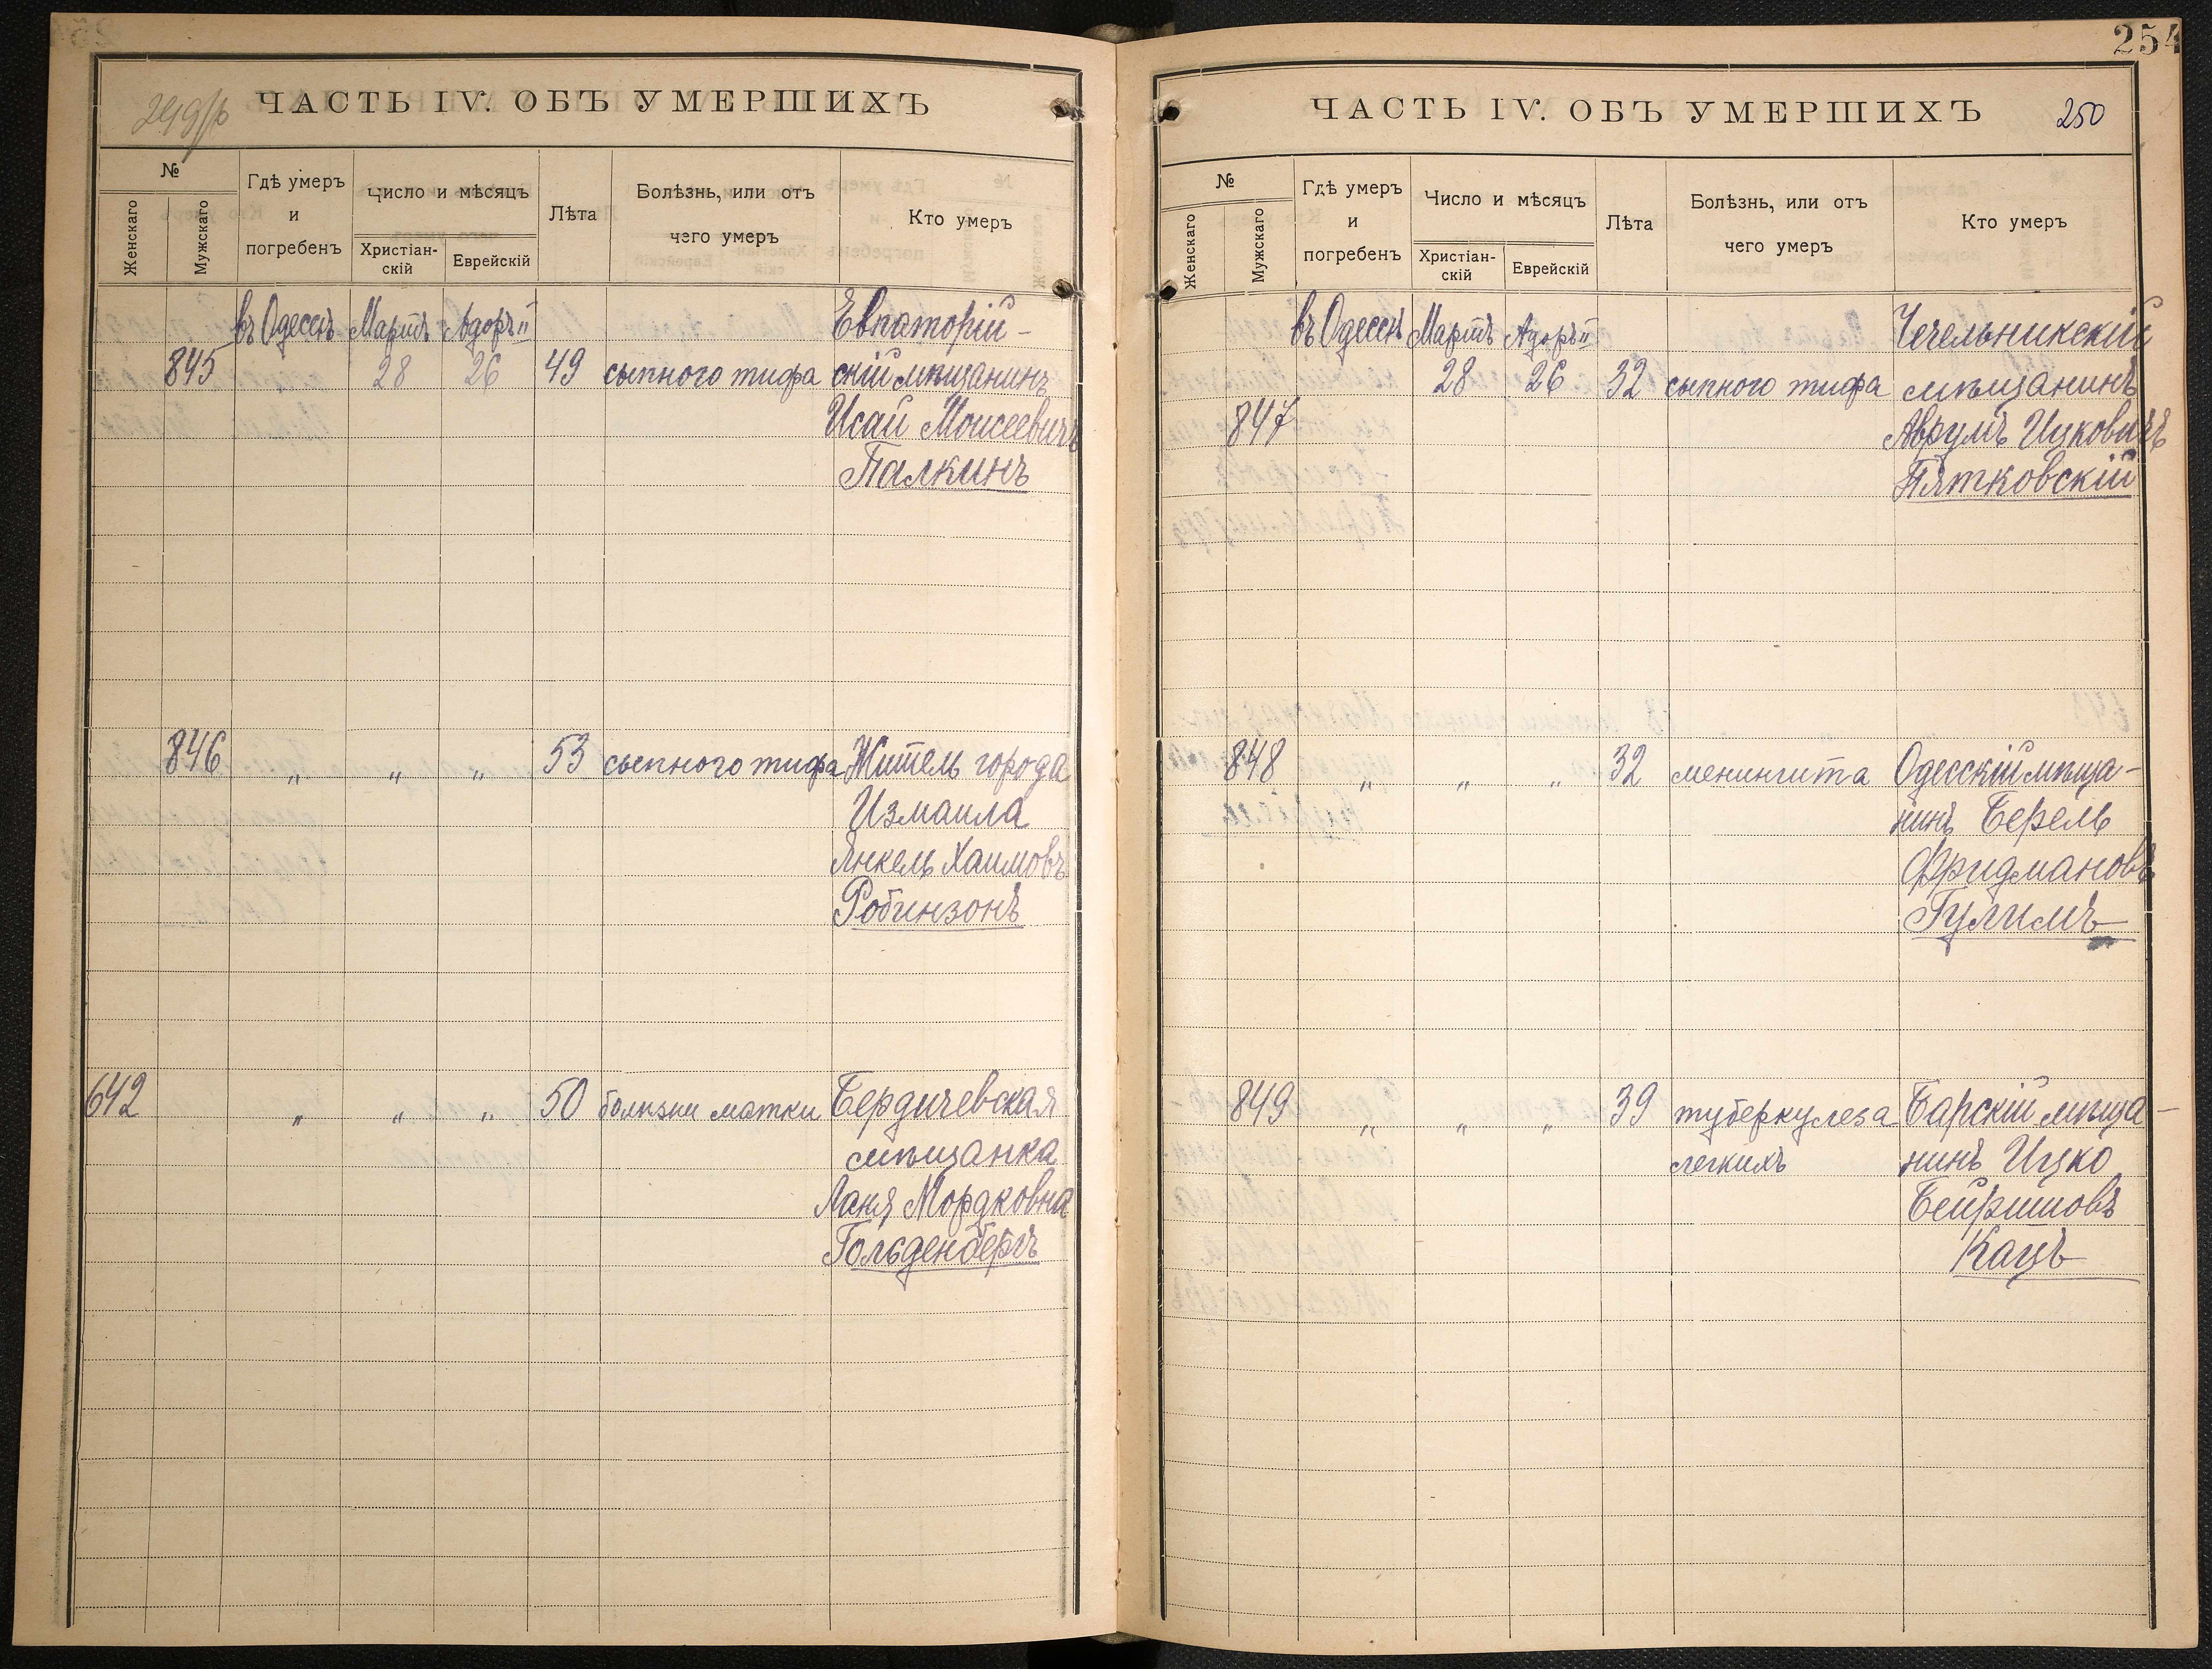 249/b
ЧАСТЬ IV. ОБЪ УМЕРШИХЪ
№
Женскаго
Мужскаго
Гдѣ умеръ
и
погребенъ
Число и мѣсяцъ
Христіан-
скій
Еврейскій
Лѣта
Болѣзнь, или отъ
чего умеръ
Кто умеръ
въ Одессѣ Мартъ Адоръ II Евпаторій-
845 " 28 26 49 сыпного тифа скій мѣщанинъ
Исай Моисеевичъ
Палкинъ
846 " " " 53 сыпного тифа Житель города
Измаила
Янкель Хаимовъ
Робинзонъ
642 " " " 50 болѣзни матки Бердичевская
мѣщанка
Ланя Мордковна
Гольденбергъ
254
ЧАСТЬ IV. ОБЪ УМЕРШИХЪ
250
№
Женскаго
Мужскаго
Гдѣ умеръ
и
погребенъ
Число и мѣсяцъ
Христіан-
скій
Еврейскій
Лѣта
Болѣзнь, или отъ
чего умеръ
Кто умеръ
въ Одессѣ Мартъ Адоръ II Чечельникскій
28 26 32 сыпного тифа мѣщанинъ
847 Аврумъ Ицковичъ
Пятковскій
848 " " " 32 менингита Одесскій мѣща-
нинъ Берель
Фридмановъ
Гулимъ
849 " " " 39 туберкулеза Барскій мѣща-
легкихъ нинъ Ицко
Бейришовъ
Кацъ